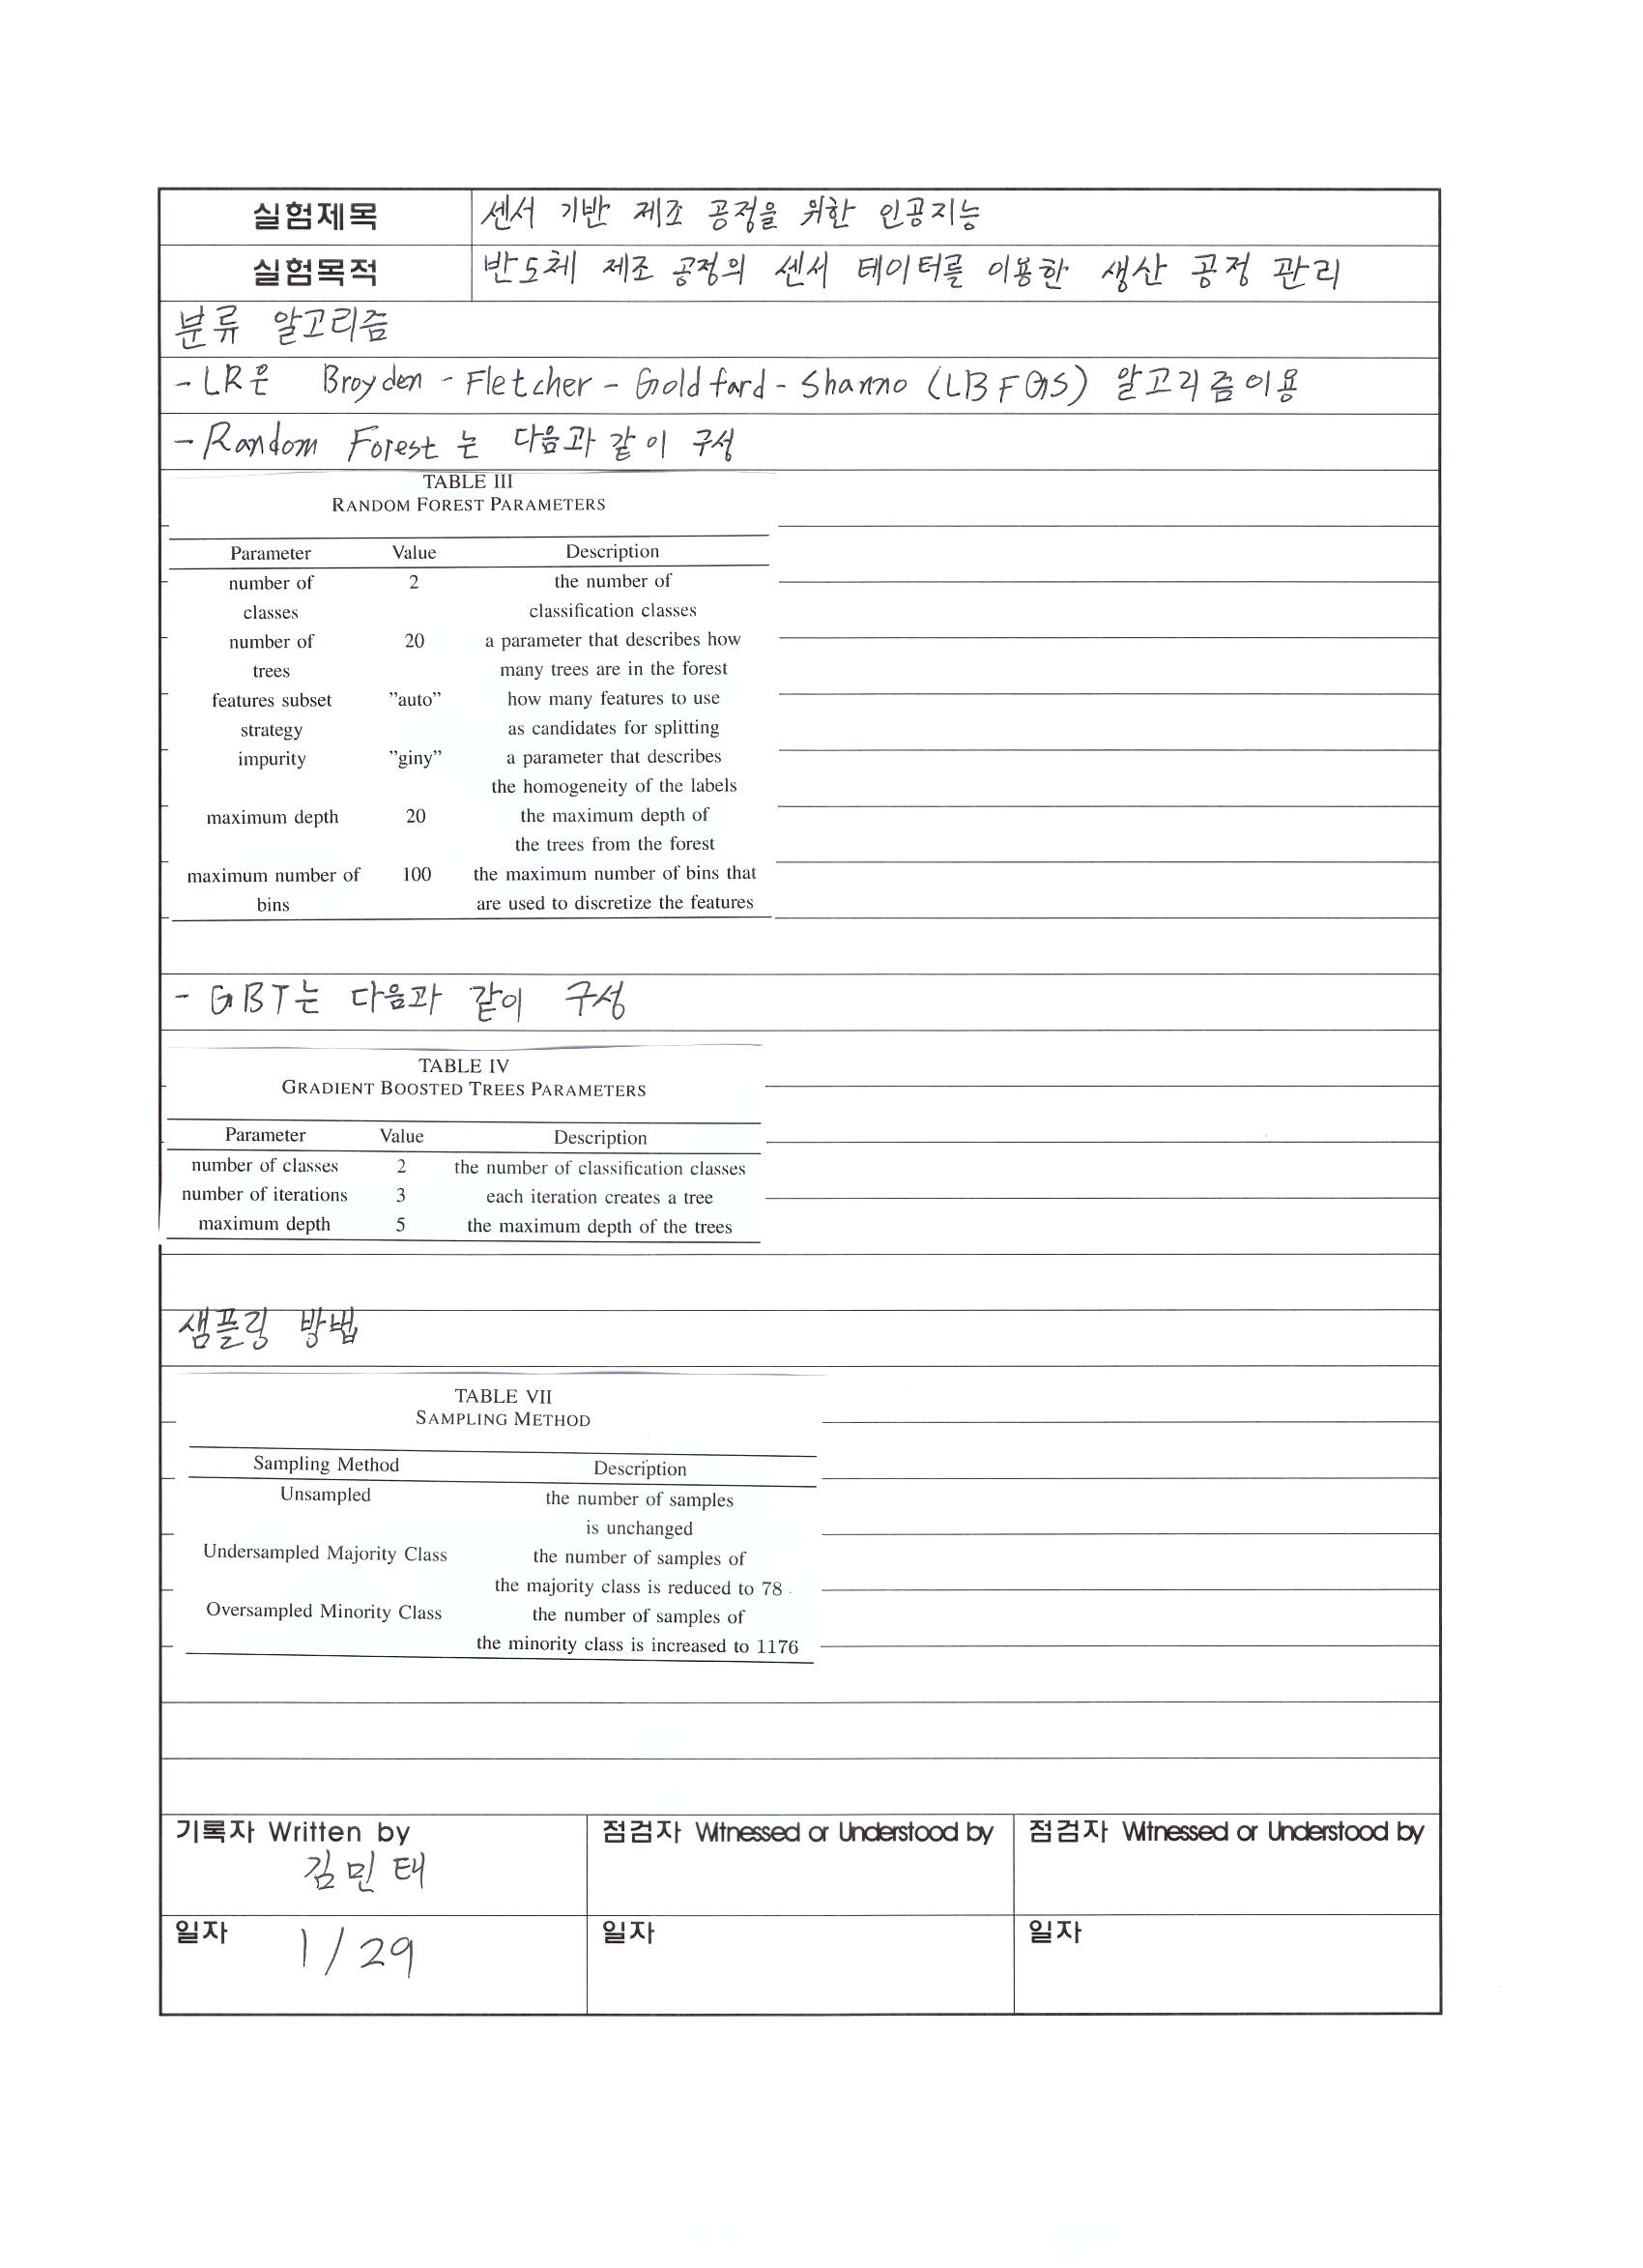 실험제목 센서 기반 제조 공정을 위한 인공지능
실험목적 반도체 제조 공정의 센서 테이터를 이용한 생산 공정 관리
분류 알고리즘
- LR은 Broyden - Fletcher - Goldfard - Shanno (LBFGS) 알고리즘이용
- Random Forest 는 다음과 같이 구성
TABLE III
RANDOM FOREST PARAMETERS
Parameter Value Description
number of 2 the number of
classes classification classes
number of 20 a parameter that describes how
trees many trees are in the forest
features subset ”auto” how many features to use
strategy as candidates for splitting
impurity ”giny” a parameter that describes
the homogeneity of the labels
maximum depth 20 the maximum depth of
the trees from the forest
maximum number of 100 the maximum number of bins that
bins are used to discretize the features
- GBT는 다음과 같이 구성
TABLE IV
GRADIENT BOOSTED TREES PARAMETERS
Parameter Value Description
number of classes 2 the number of classification classes
number of iterations 3 each iteration creates a tree
maximum depth 5 the maximum depth of the trees
샘플링 방법
TABLE VII
SAMPLING METHOD
Sampling Method Description
Unsampled the number of samples
is unchanged
Undersampled Majority Class the number of samples of
the majority class is reduced to 78
Oversampled Minority Class the number of samples of
the minority class is increased to 1176
기록자 Written by 점검자 Witnessed or Understood by 점검자 Witnessed or Understood by
김민태
일자 1/29 일자 일자